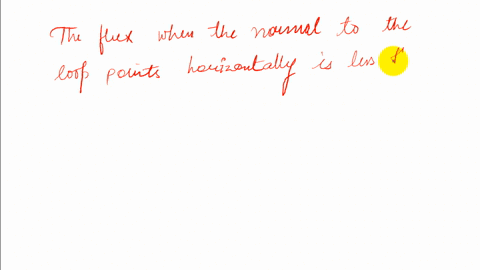 The flux when the normal to the
loop points horizontally is less